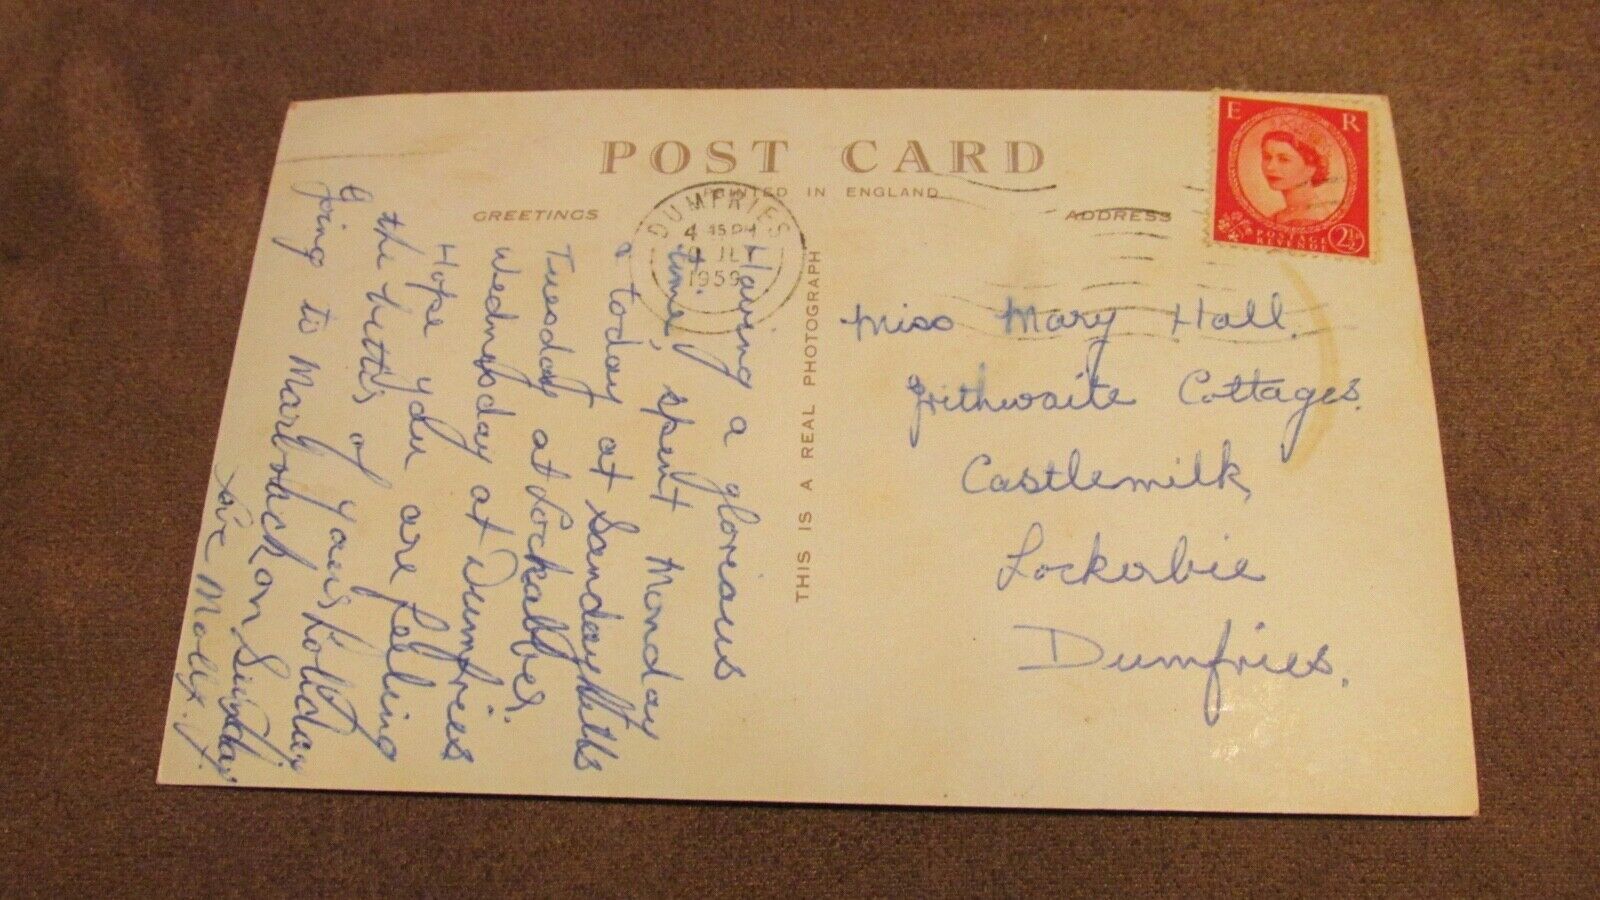 POST CARD
PRINTED IN ENGLAND
GREETINGS
ADDRESS
DUMFRIES
4 45 PM
JLY
1959
E R
POSTAGE
REVENUE
2½D
THIS IS A REAL PHOTOGRAPH
Having a glorious
time, spent Monday
& today at Sandyhills
Tuesday at Lockabber.
Wednesday at Dumfries
Hope you are feeling
the better of your holiday.
Going to Marbrack on Sunday
Love Molly.
Miss Mary Hall.
Smithwaite Cottages.
Castlemilk,
Lockerbie
Dumfries.